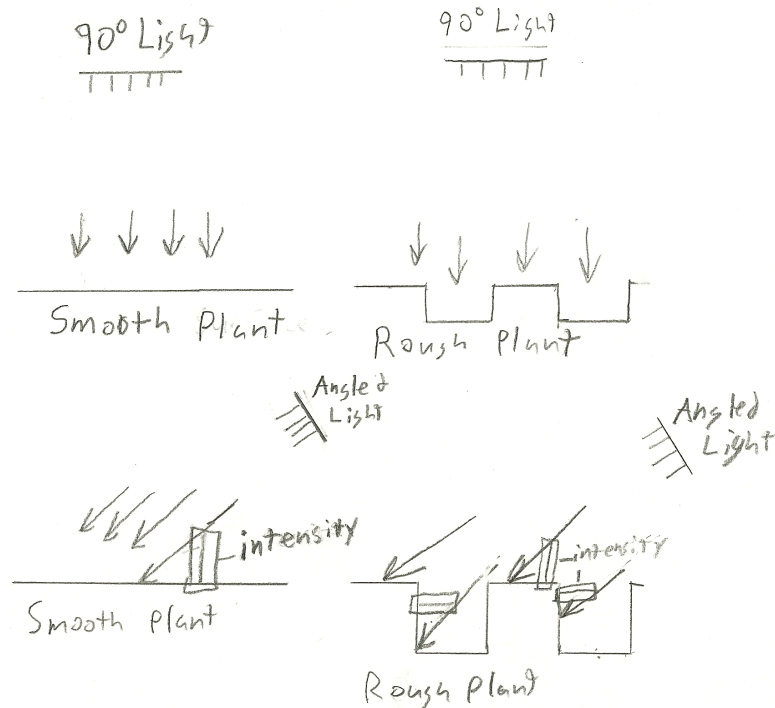 90° Light
90° Light
Smooth Plant
Rough Plant
Angled
Light
Angled
Light
intensity
intensity
Smooth Plant
Rough Plant